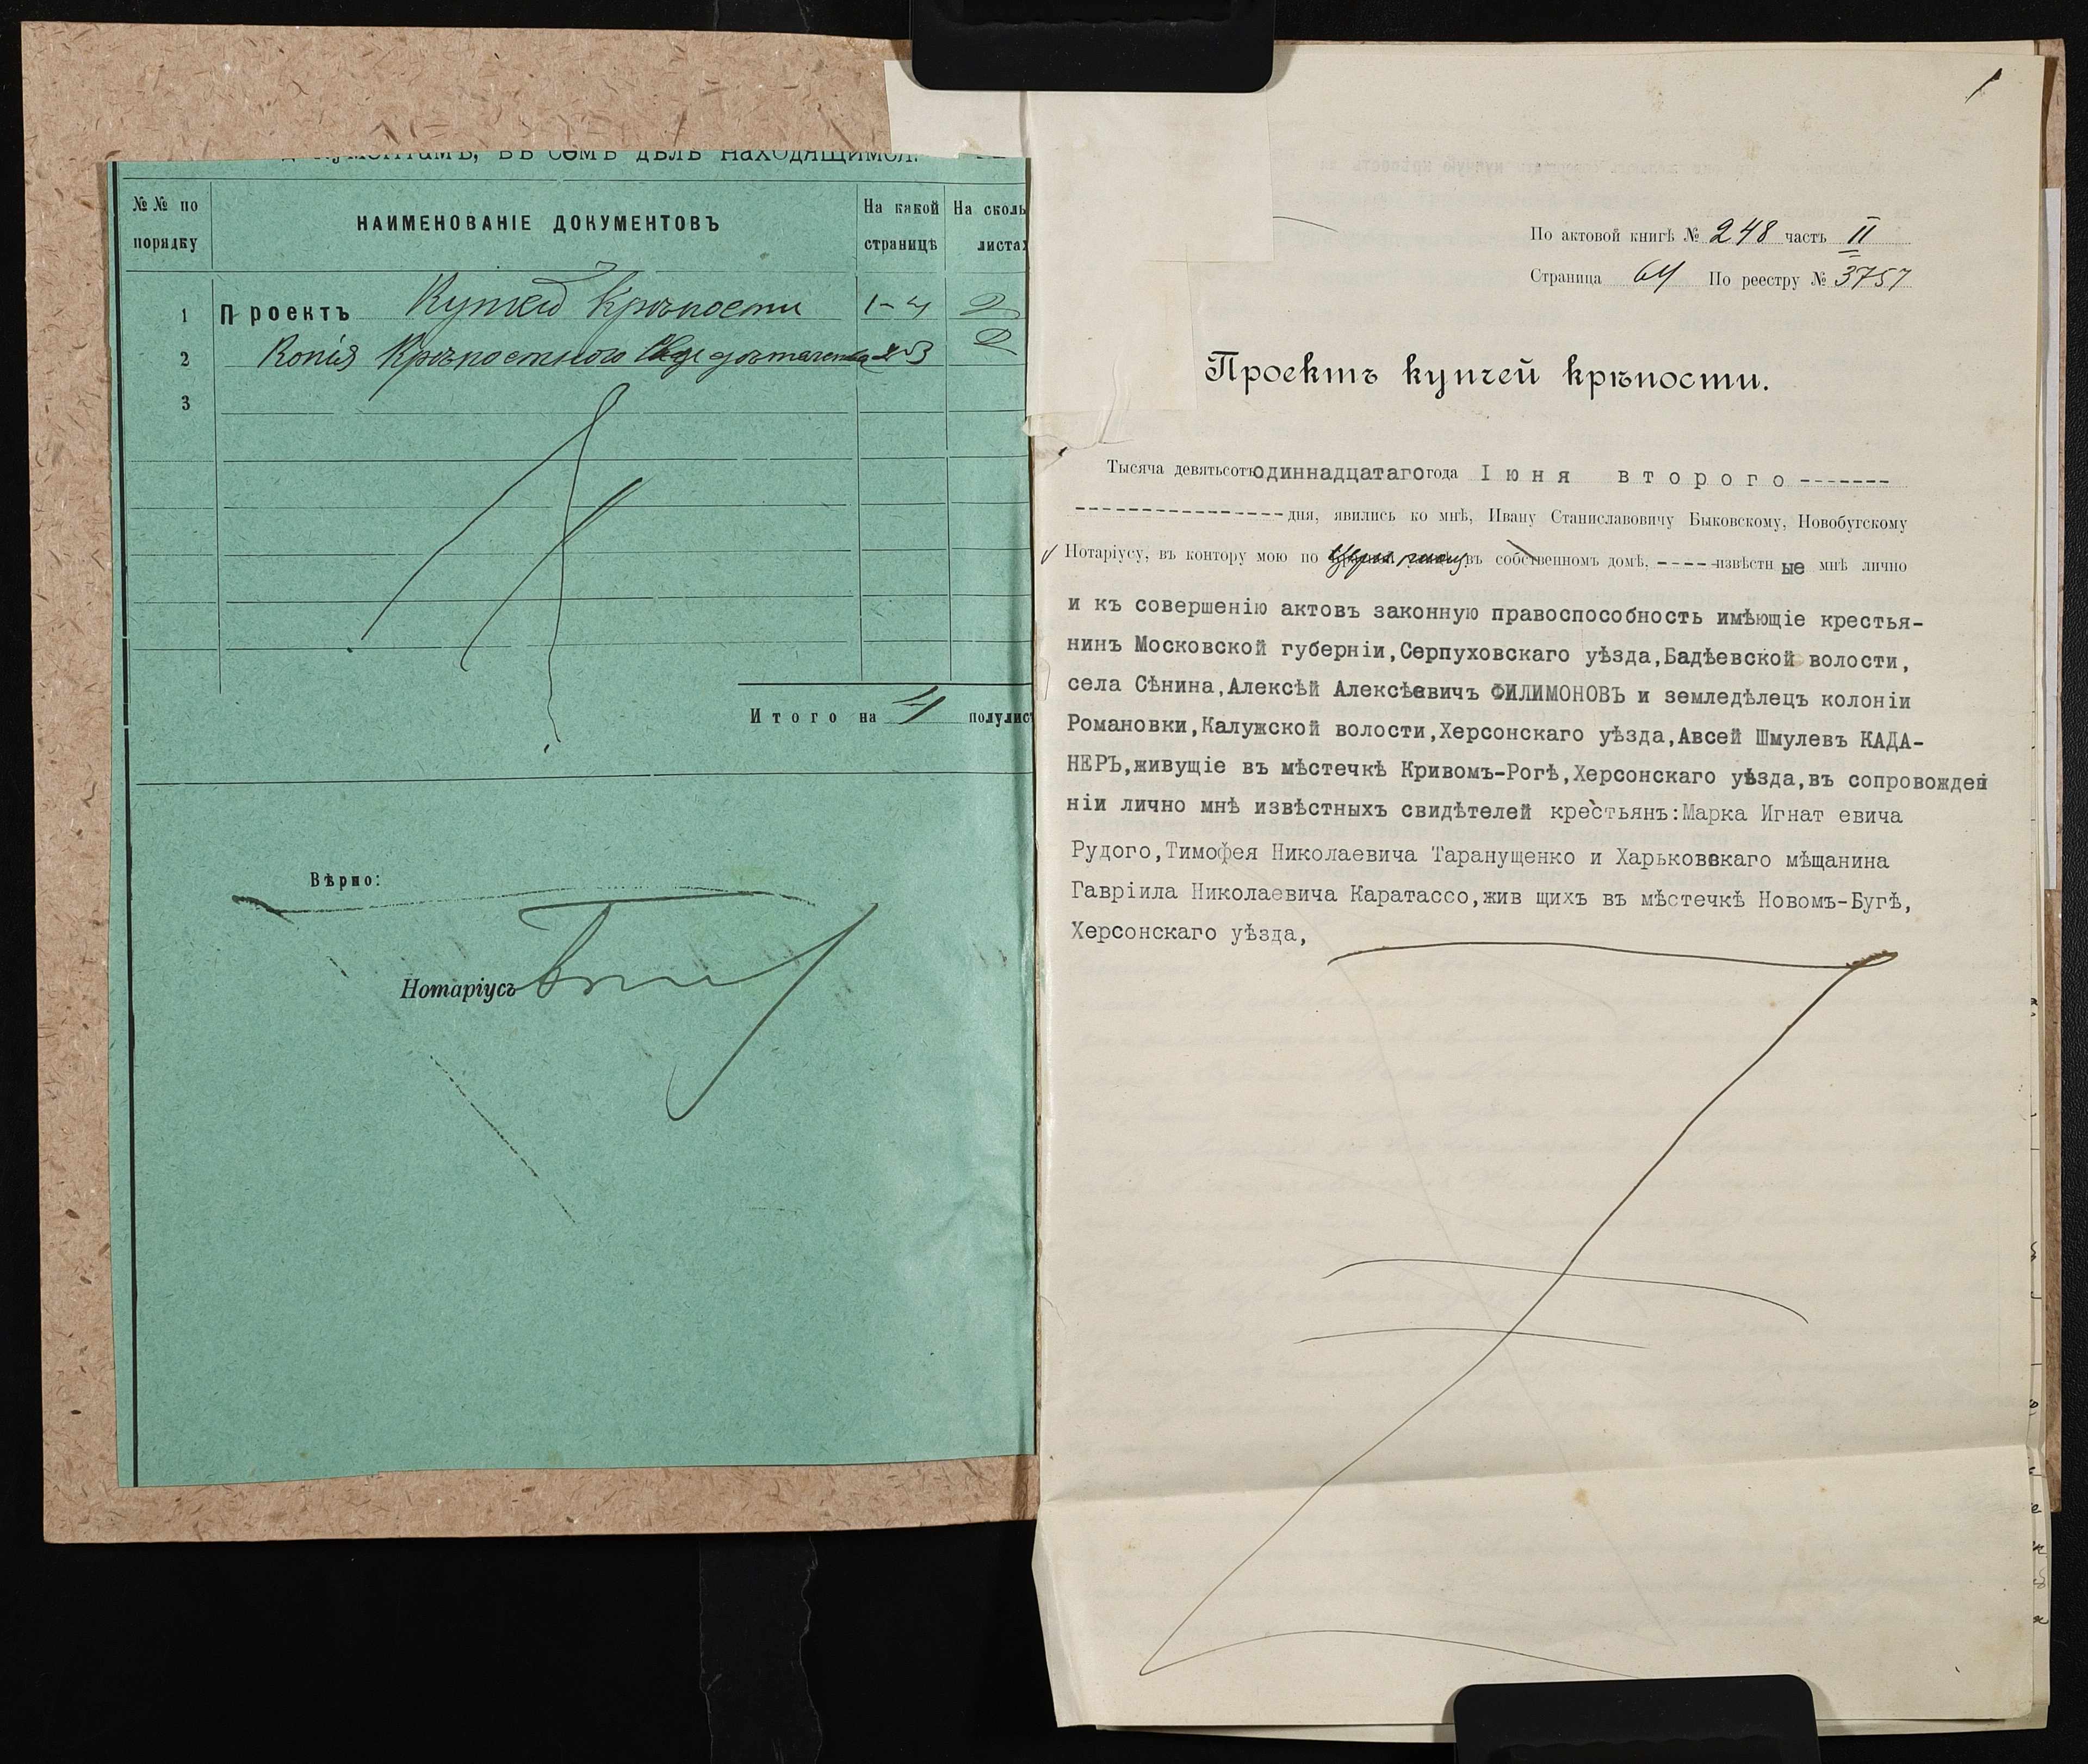 документамъ, въ семъ дѣлѣ находящимся.
№№ по порядку
НАИМЕНОВАНІЕ ДОКУМЕНТОВЪ
На какой страницѣ
На сколь
листах
1 Проектъ Купчей Крѣпости 1-4 2
2 Копія Крѣпостного 2
3
Итого на 4 полулист
Вѣрно:
Нотаріусъ
1
По актовой книгѣ № 248 часть II
Страница 64 По реестру № 3757
Проектъ купчей крѣпости.
Тысяча девятьсотъ одиннадцатаго года Іюня второго -------
----------------- дня, явились ко мнѣ, Ивану Станиславовичу Быковскому, Новобугскому
Нотаріусу, въ контору мою по въ собственномъ домѣ, ---- извѣстн ые мнѣ лично
и къ совершенію актовъ законную правоспособность имѣющіе крестья-
нинъ Московской губерніи,Серпуховскаго уѣзда,Бадѣевской волости,
села Сѣнина,Алексѣй Алексѣевичъ ФИЛИМОНОВЪ и земледѣлецъ колоніи
Романовки,Калужской волости,Херсонскаго уѣзда,Авсей Шмулевъ КАДА-
НЕРЪ,живущіе въ мѣстечкѣ Кривомъ-Рогѣ,Херсонскаго уѣзда,въ сопровожде
ніи лично мнѣ извѣстныхъ свидѣтелей крестьянъ:Марка Игнат евича
Рудого,Тимофея Николаевича Таранущенко и Харьковвкаго мѣщанина
Гавріила Николаевича Каратассо,жив щихъ въ мѣстечкѣ Новомъ-Бугѣ,
Херсонскаго уѣзда,